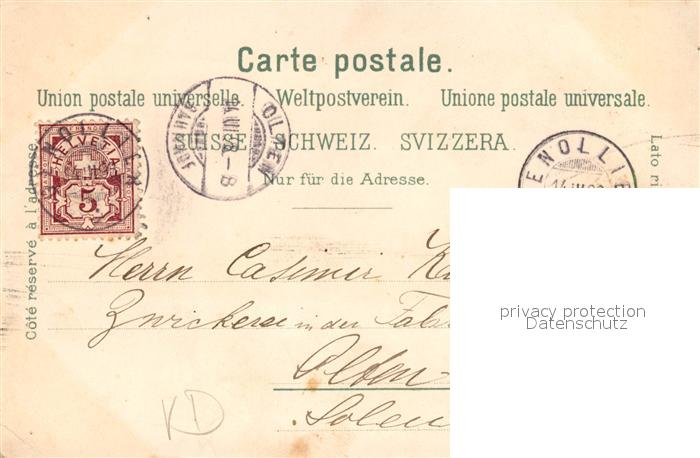 Carte postale.
Union postale universelle. Weltpostverein. Unione postale universale.
SUISSE. SCHWEIZ. SVIZZERA.
Nur für die Adresse.
Côté réservé à l'adresse.
Lato ri
HELVETIA
5
OLTEN
14 III
-8
ENOLLI
14 III
Herrn Casimir
Zwickerei in der
Olten
KD
privacy protection
Datenschutz